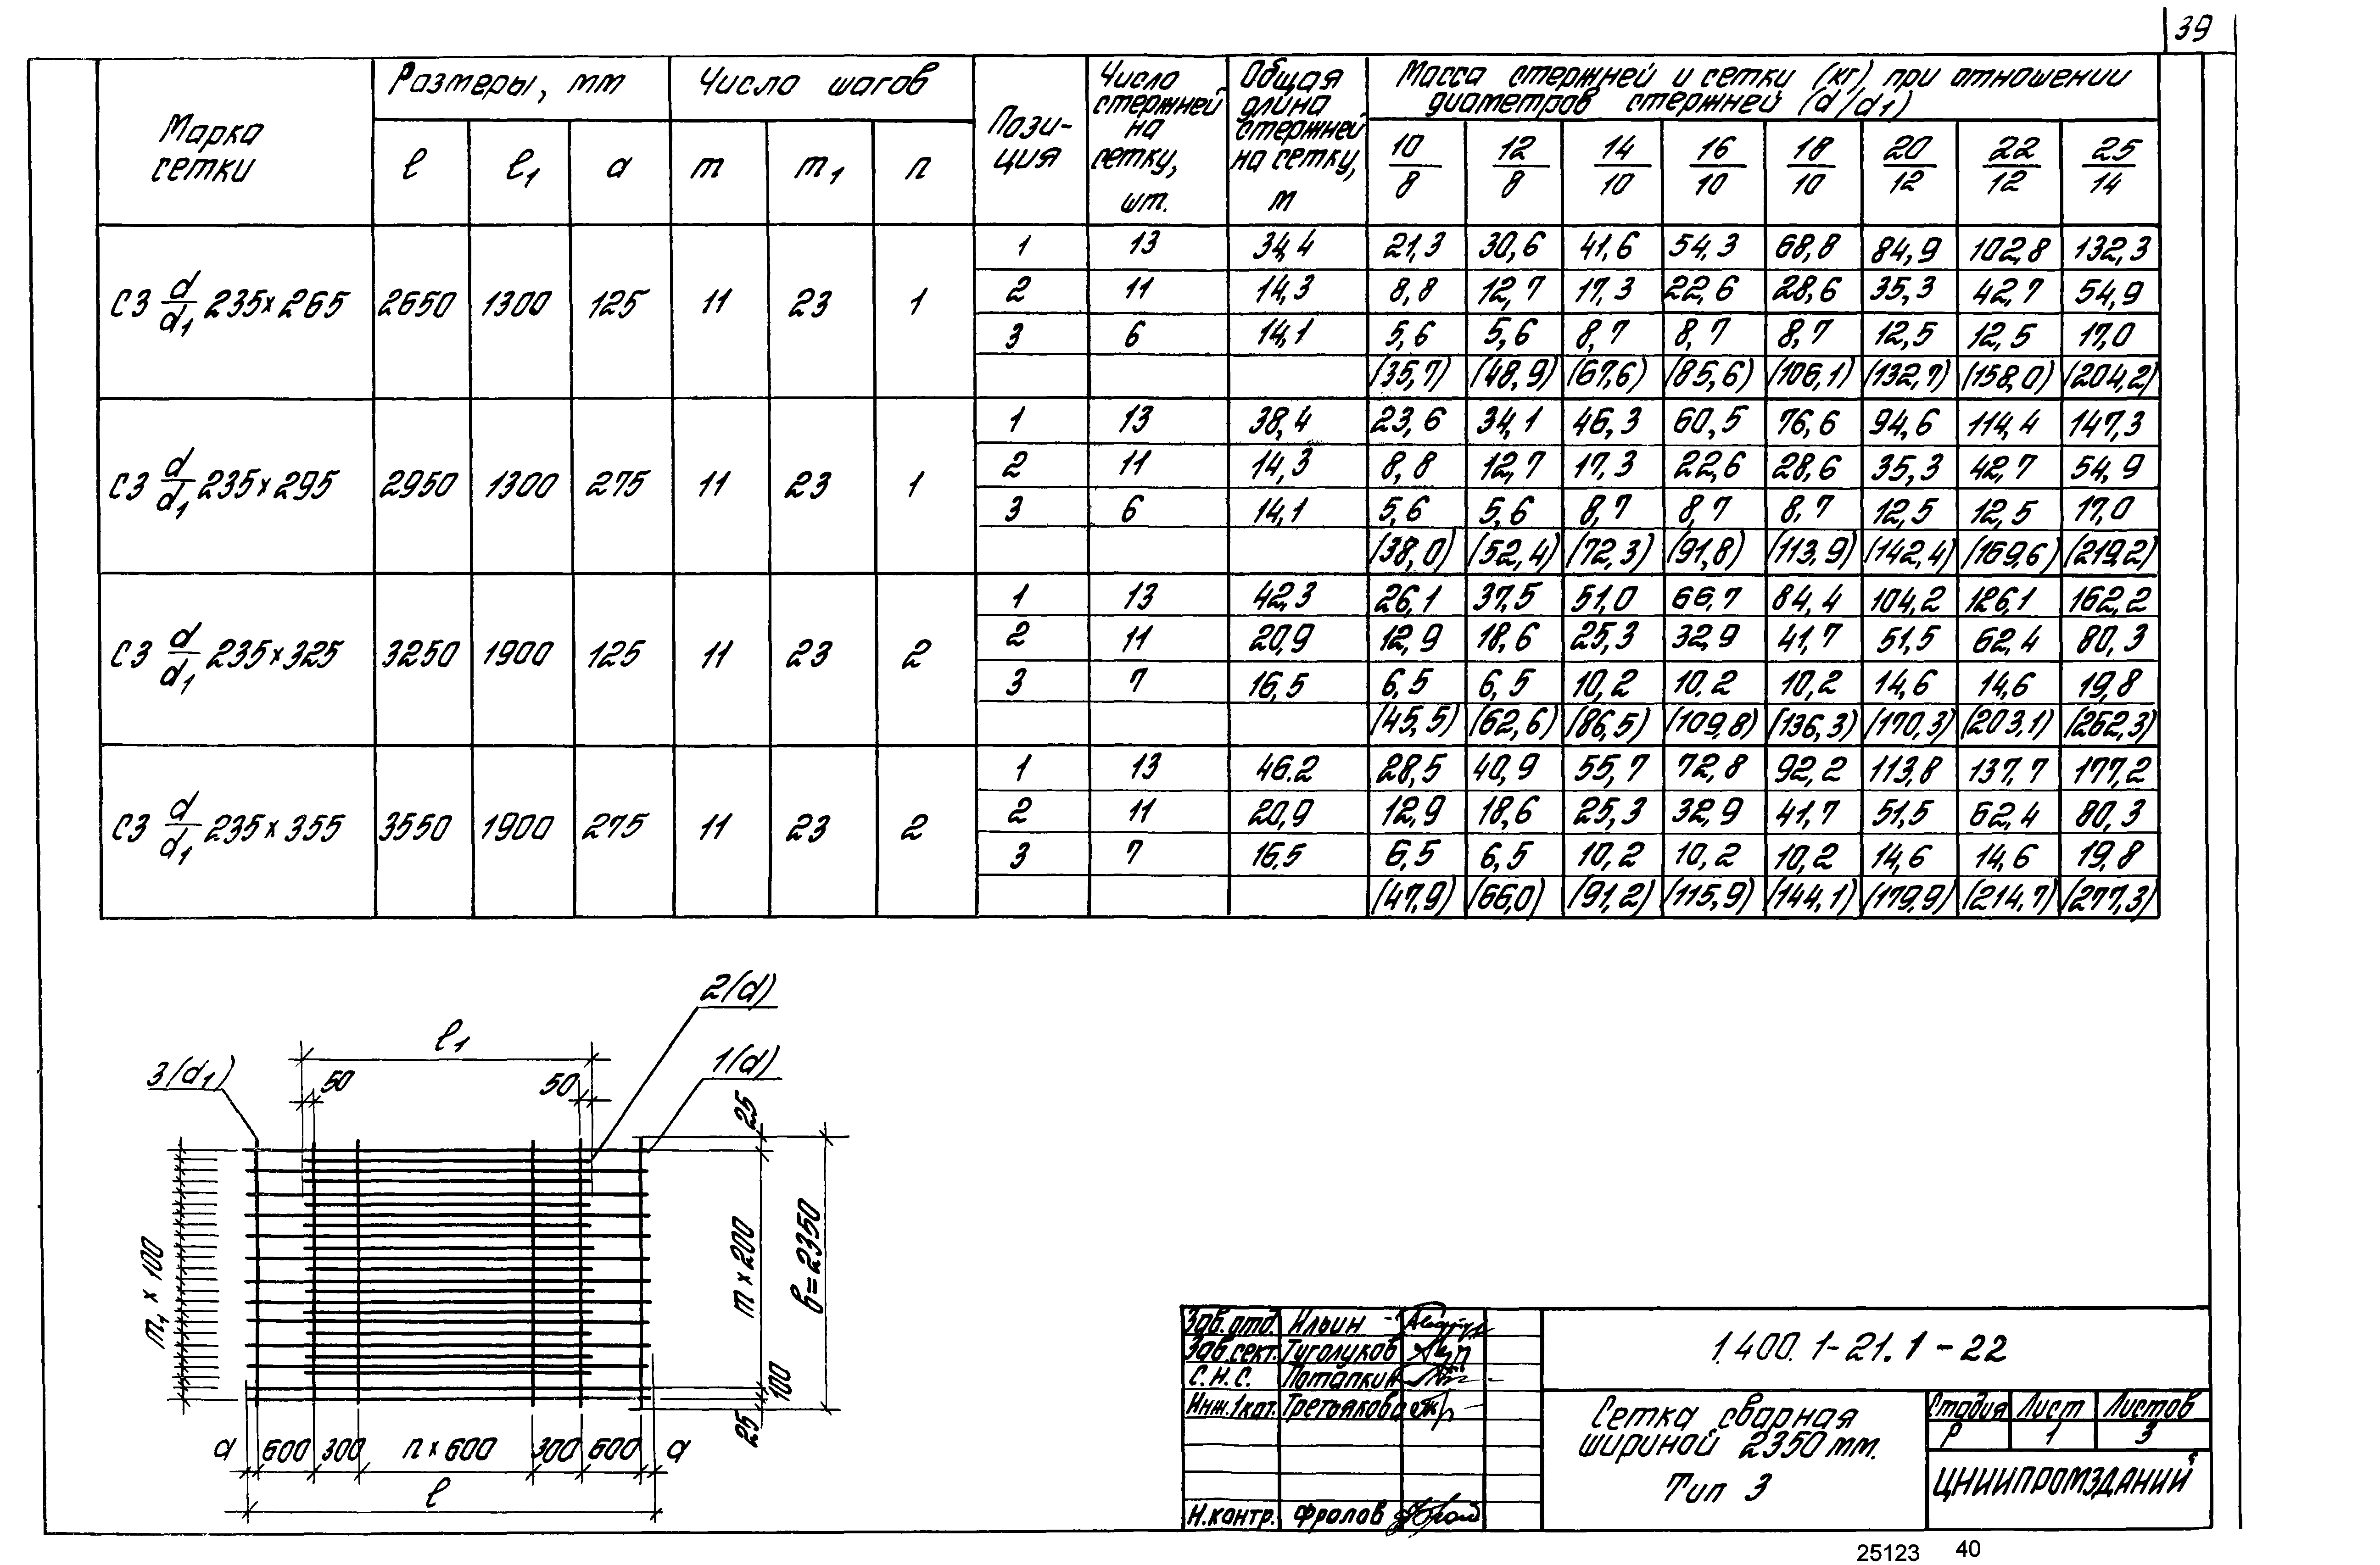 39
Марка сетки
Размеры, мм
Число шагов
Пози-
ция
Число стержней на сетку, шт.
Общая длина стержней на сетку, м
Масса стержней и сетки (кг) при отношении
диаметров стержней (d/d1)
ℓ ℓ1 a m m1 n
10/8 12/8 14/10 16/10 18/10 20/12 22/12 25/14
С3 d/d1 235×265 2650 1300 125 11 23 1
1 13 34,4 21,3 30,6 41,6 54,3 68,8 84,9 102,8 132,3
2 11 14,3 8,8 12,7 17,3 22,6 28,6 35,3 42,7 54,9
3 6 14,1 5,6 5,6 8,7 8,7 8,7 12,5 12,5 17,0
(35,7) (48,9) (67,6) (85,6) (106,1) (132,7) (158,0) (204,2)
С3 d/d1 235×295 2950 1300 275 11 23 1
1 13 38,4 23,6 34,1 46,3 60,5 76,6 94,6 114,4 147,3
2 11 14,3 8,8 12,7 17,3 22,6 28,6 35,3 42,7 54,9
3 6 14,1 5,6 5,6 8,7 8,7 8,7 12,5 12,5 17,0
(38,0) (52,4) (72,3) (91,8) (113,9) (142,4) (169,6) (219,2)
С3 d/d1 235×325 3250 1900 125 11 23 2
1 13 42,3 26,1 37,5 51,0 66,7 84,4 104,2 126,1 162,2
2 11 20,9 12,9 18,6 25,3 32,9 41,7 51,5 62,4 80,3
3 7 16,5 6,5 6,5 10,2 10,2 10,2 14,6 14,6 19,8
(45,5) (62,6) (86,5) (109,8) (136,3) (170,3) (203,1) (262,3)
С3 d/d1 235×355 3550 1900 275 11 23 2
1 13 46.2 28,5 40,9 55,7 72,8 92,2 113,8 137,7 177,2
2 11 20,9 12,9 18,6 25,3 32,9 41,7 51,5 62,4 80,3
3 7 16,5 6,5 6,5 10,2 10,2 10,2 14,6 14,6 19,8
(47,9) (66,0) (91,2) (115,9) (144,1) (179,9) (214,7) (277,3)
2(d)
ℓ1
3(d1)
1(d)
50 50
25
m1 × 100
m × 200
b=2350
100
25
a 600 300 n×600 300 600 a
ℓ
Зав.отд. Ильин
Зав.сект. Туголуков
С.Н.С. Потапкин
Инж.1кат. Третьякова
Н.контр. Фролов
1.400.1-21.1-22
Сетка сварная
шириной 2350 мм.
Тип 3
Стадия Лист Листов
Р 1 3
ЦНИИПРОМЗДАНИЙ
25123 40